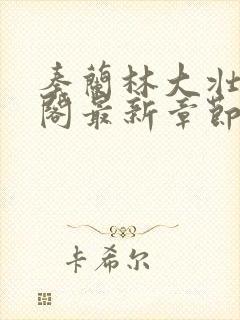 秦蘭林大壯
閣最新章節
卡希尔